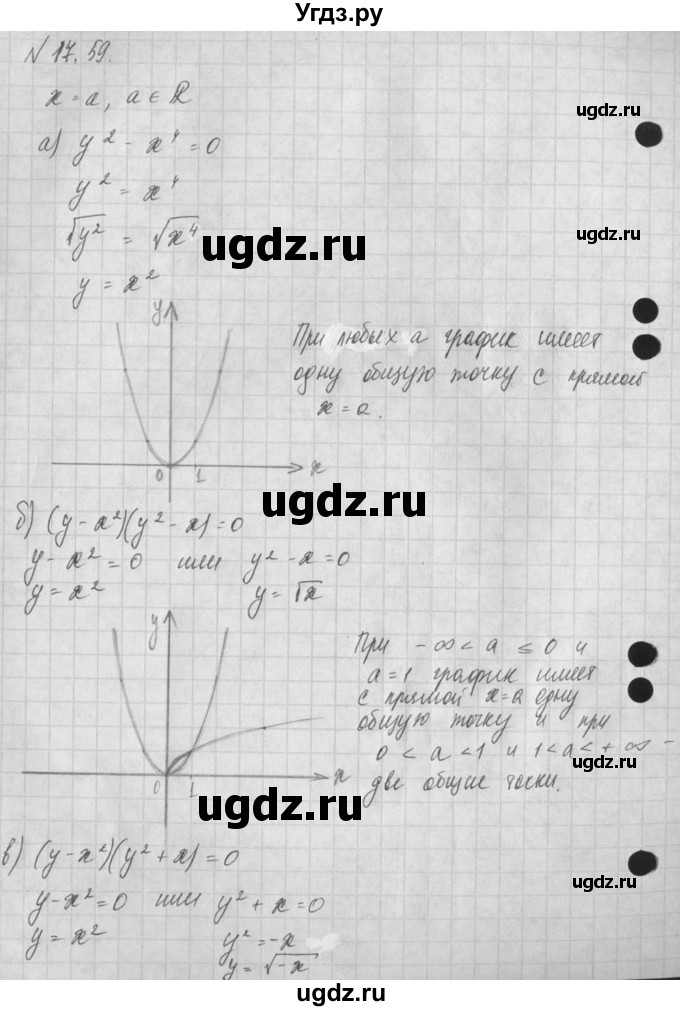 Угдз.ру
№ 17.59.
x = a, a ∈ R
ugdz.ru
а) y² - x⁴ = 0
y² = x⁴
√y² = √x⁴
ugdz.ru
ugdz.ru
y = x²
y
При любых a график имеет
одну общую точку с прямой
x = a.
0 1 x
ugdz.ru
ugdz.ru
б) (y - x²)(y² - x) = 0
y - x² = 0 или y² - x = 0
y = x² y = √x
y
При -∞ < a ≤ 0 и
a = 1 график имеет
с прямой x = a одну
общую точку и при
0 < a < 1 и 1 < a < +∞ -
две общие точки.
0 1 x
ugdz.ru
ugdz.ru
в) (y - x²)(y² + x) = 0
ugdz.ru
y - x² = 0 или y² + x = 0
y = x² y² = -x
y = √-x
ugdz.ru
ugdz.ru